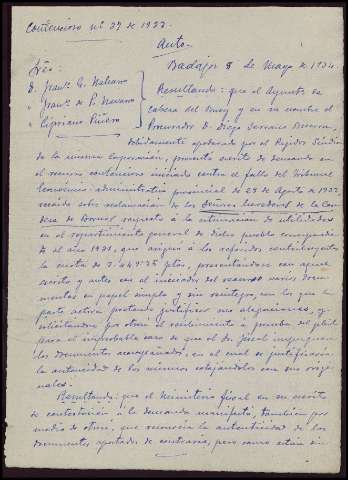 Contencioso nº 37 de 1933.
Auto.
Badajoz 8 de Mayo de 1934.
Sres.
D. Franco G. Naharro
" Franco de P. Navarro
" Cipriano Piñero
Resultando: que el Ayuntº de
Cabeza del Buey y en su nombre el
Procurador D. Diego Serrano
debidamente apoderado por el Regidor Síndico
de la misma Corporación, presentó escrito de demanda en
el recurso contencioso iniciado contra el fallo del Tribunal
Económico-administrativo provincial de 28 de Agosto de 1933
recaído sobre reclamación de los Señores herederos de la Con
desa de Bornos respecto a la estimación de utilidades
en el repartimiento general de dicho pueblo correspondien
te al año 1931, que asignó a los referidos contribuyentes
la cuota de ptas, presentándose con aquel
escrito y antes con el iniciador del recurso varios docu
mentos en papel simple y sin reintegro, con los que la
parte actora pretende justificar sus alegaciones, y
solicitándose por otrosí el recibimiento a prueba del pleito
para el improbable caso de que el Sr. Fiscal impugnara
los documentos acompañados, en el cual se justificaría
la autenticidad de los mismos cotejándolos con sus origi
nales.
Resultando: que el Ministerio fiscal en su escrito
de contestación a la demanda manifestó, también por
medio de otrosí, que reconocía la autenticidad de los
documentos aportados de contrario, pero como están sin